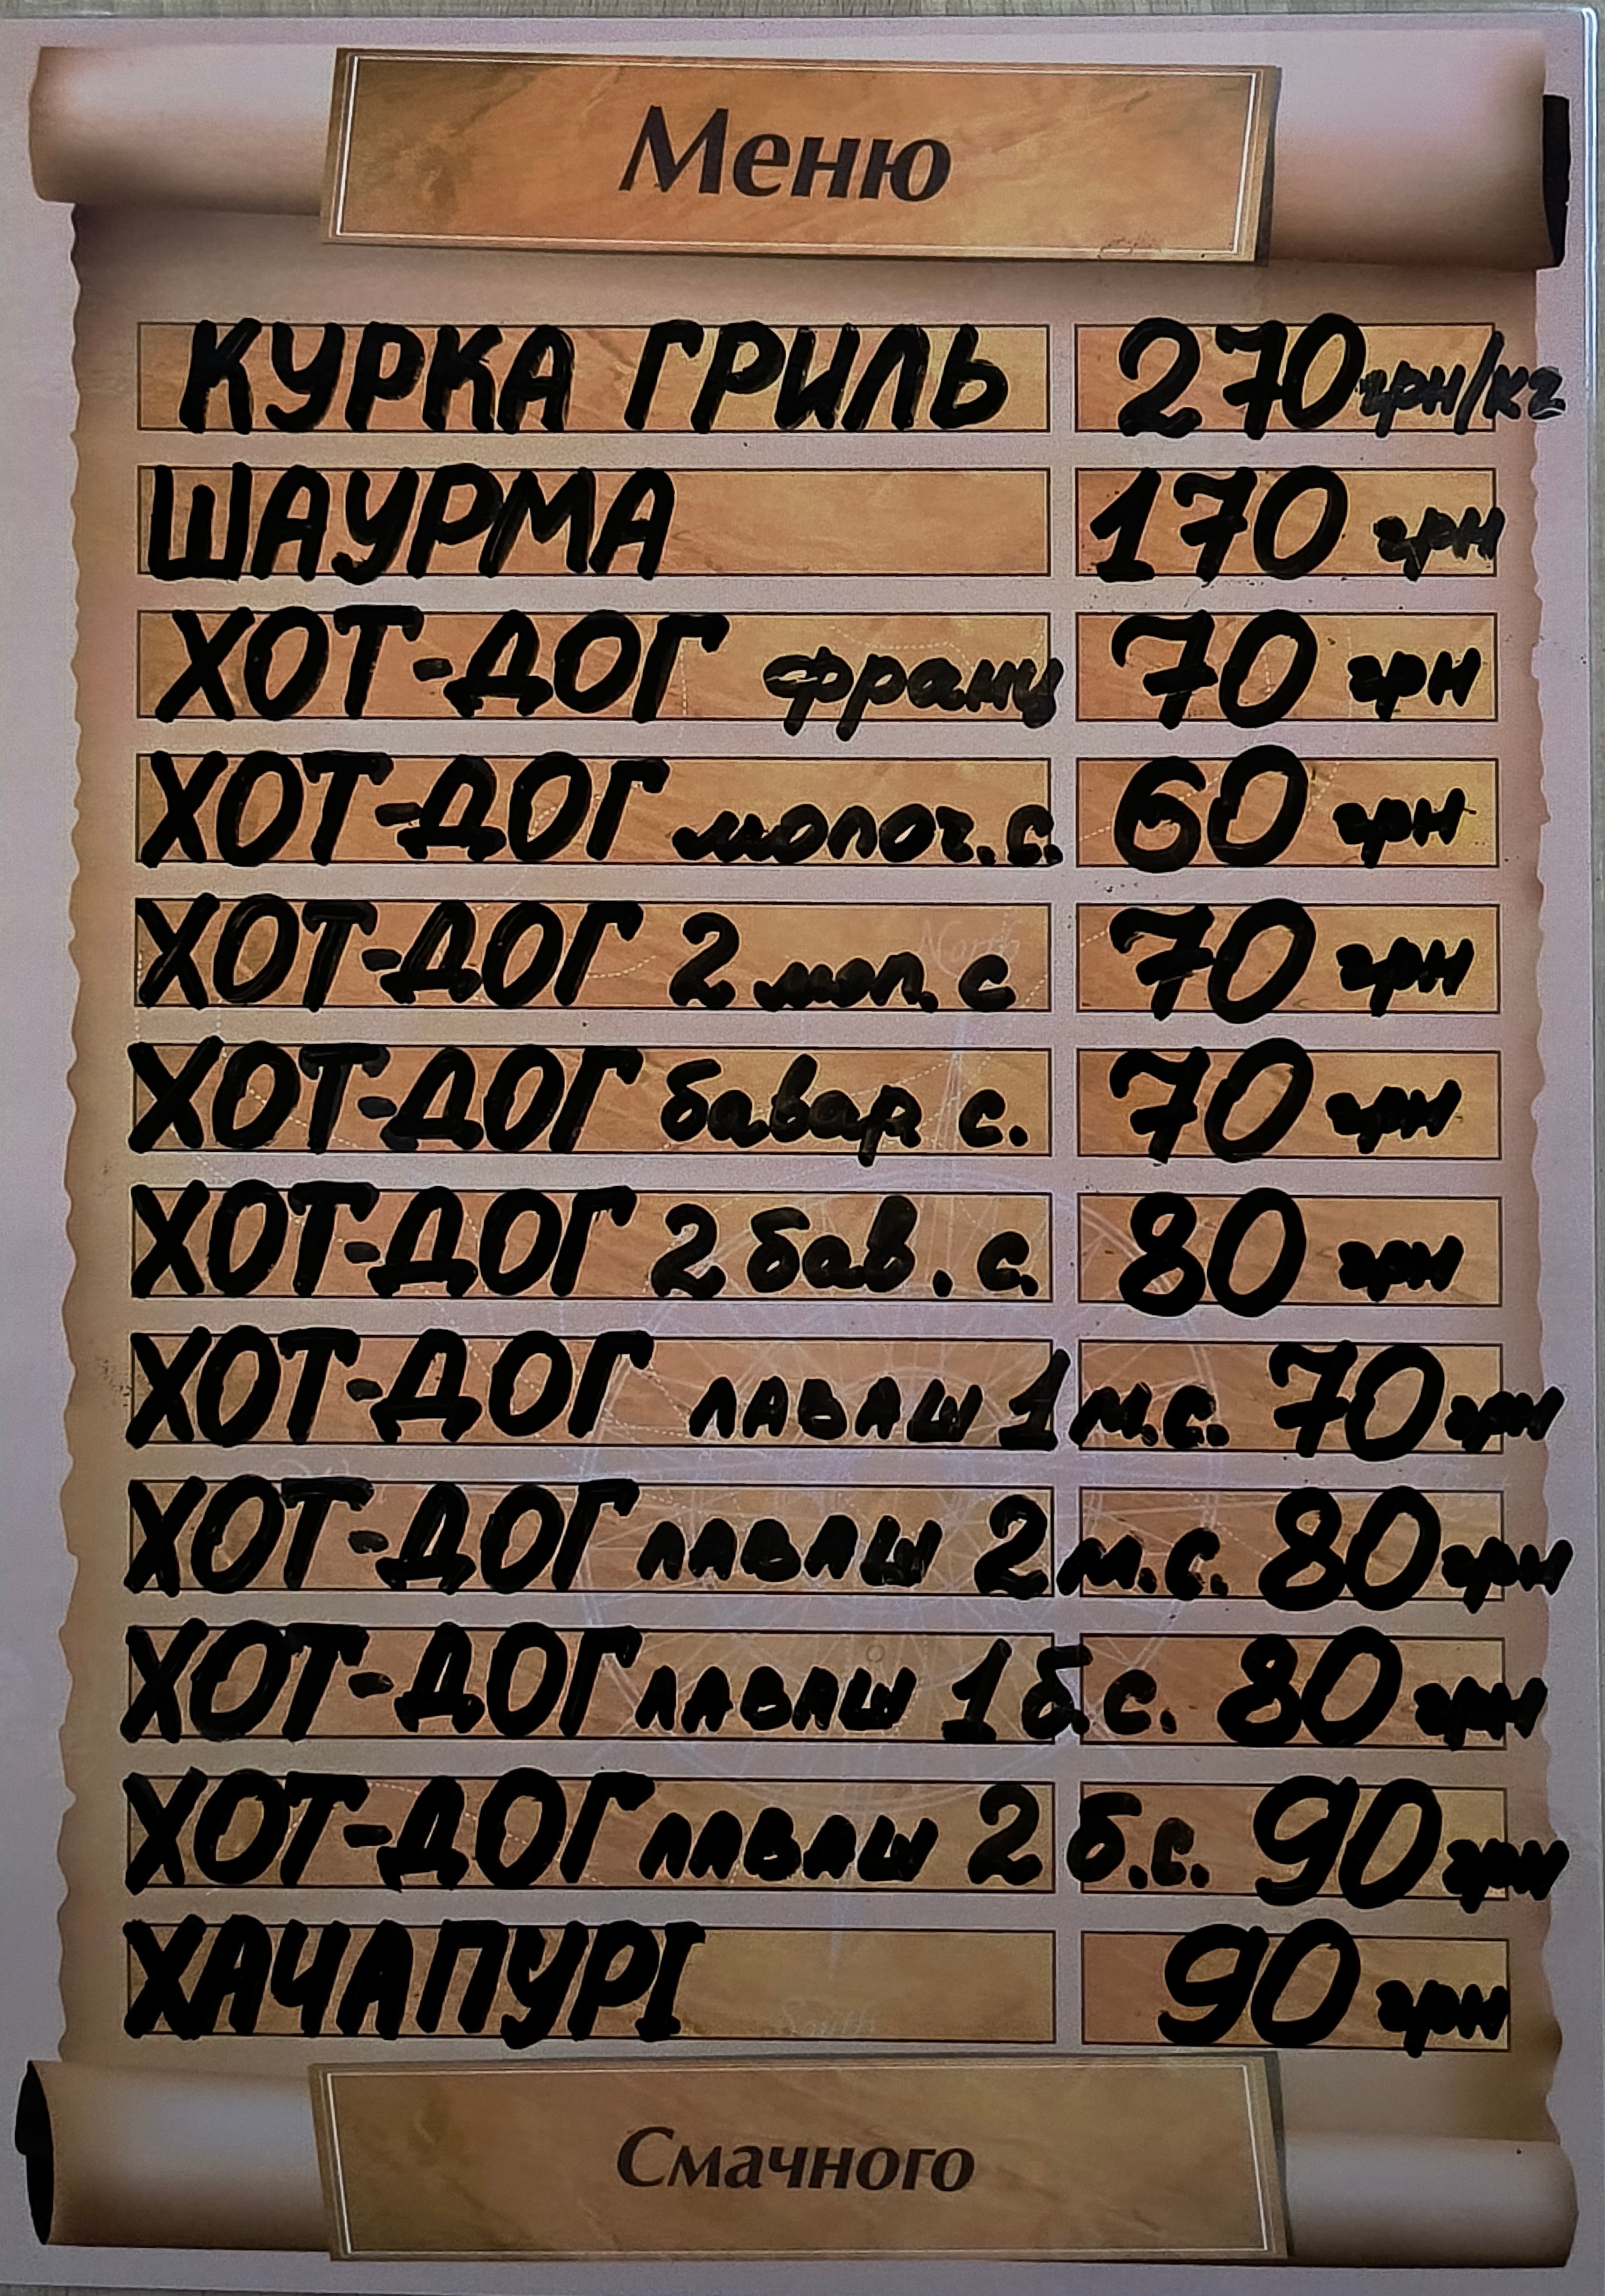 Меню
КУРКА ГРИЛЬ 270 грн/кг
ШАУРМА 170 грн
ХОТ-ДОГ франц 70 грн
ХОТ-ДОГ молоч. с. 60 грн
ХОТ-ДОГ 2 мол. с 70 грн
ХОТ-ДОГ бавар с. 70 грн
ХОТ-ДОГ 2 бав. с. 80 грн
ХОТ-ДОГ ЛАВАШ 1 м.с. 70 грн
ХОТ-ДОГ ЛАВАШ 2 м.с. 80 грн
ХОТ-ДОГ ЛАВАШ 1 б.с. 80 грн
ХОТ-ДОГ ЛАВАШ 2 б.с. 90 грн
ХАЧАПУРІ 90 грн
Смачного